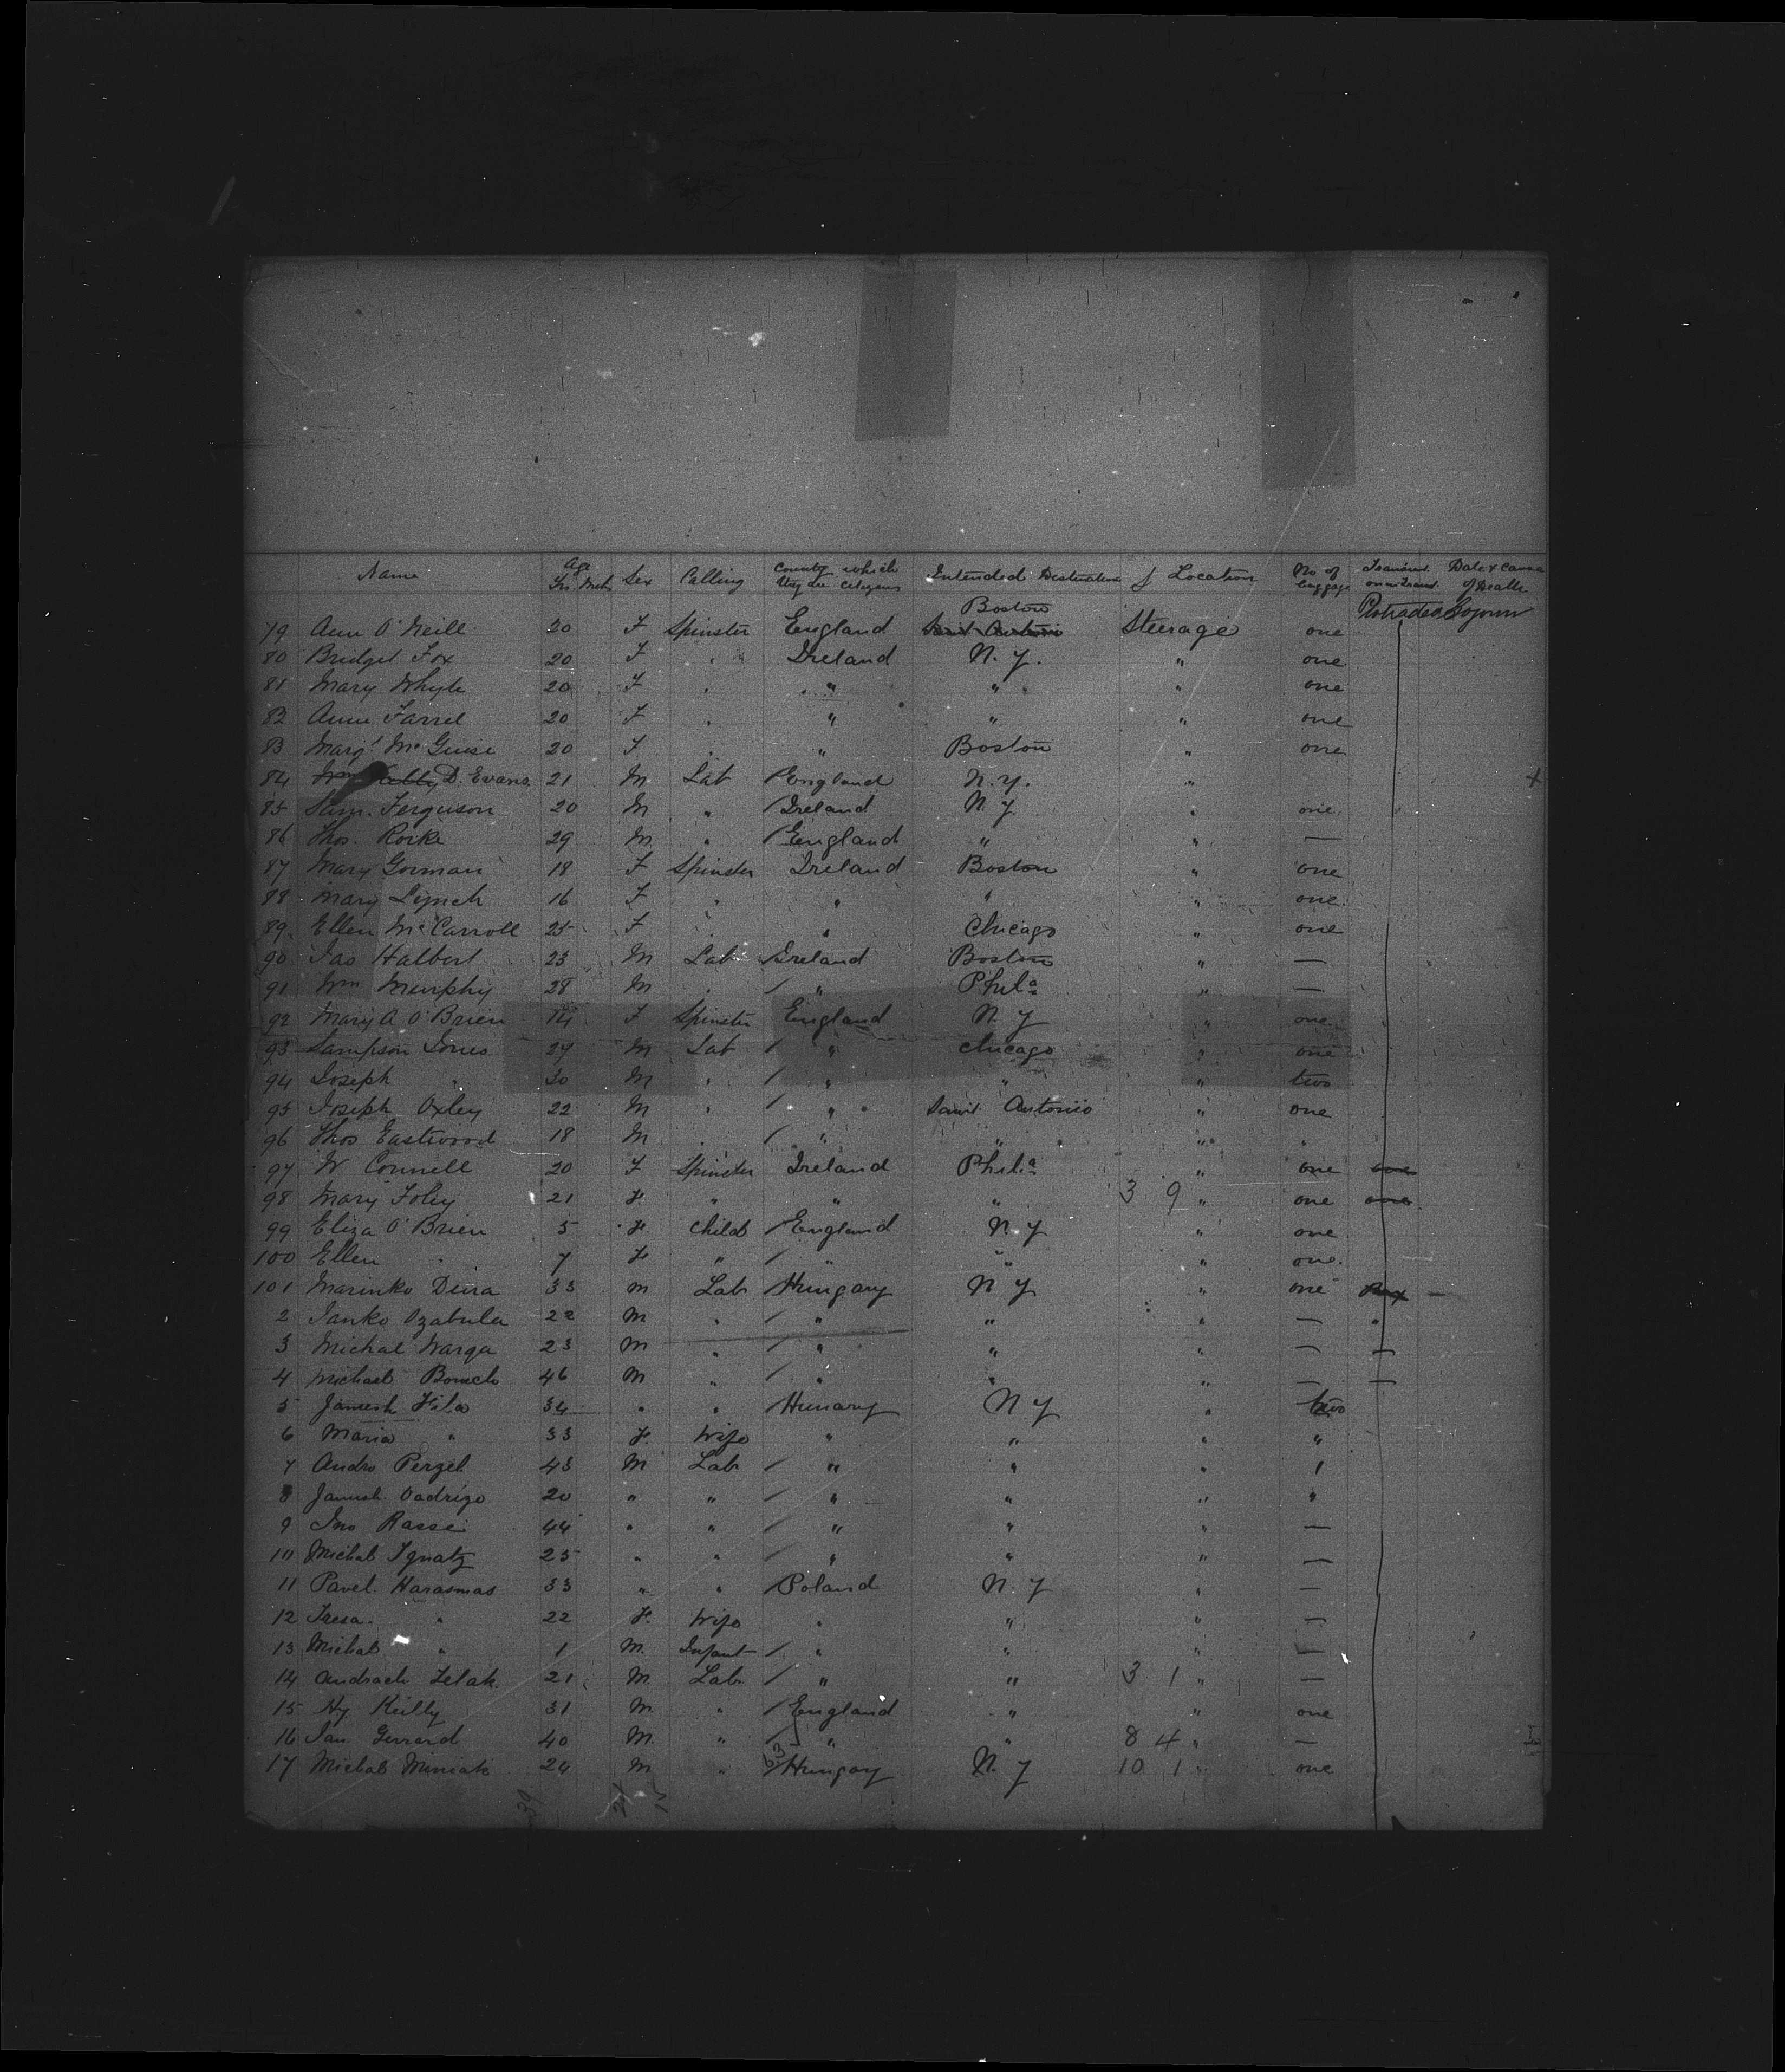 Name Age Yrs. Mths Sex Calling County which they are Citizens Intended Destination & Location No of luggage Transient or in transit Date & Cause of Death
Boston Protracted Sojourn
79 Ann O'Neill 20 F Spinster England Saint Antonio Steerage one
80 Bridget Fox 20 F " Ireland N. Y. " one
81 Mary Whyte 20 F " " " " one
82 Anne Farrel 20 F " " " " one
83 Margt McGuise 20 F " " Boston " one
84 Wm D. Evans. 21 M Lab / England N. Y. " +
85 Ferguson 20 M " / Ireland N. Y " one
86 Thos. Rorke 29 M " / England " " —
87 Mary Gorman 18 F Spinster Ireland Boston " one
88 Mary Lynch 16 F " " " " one
89 Ellen McCarroll 25 F " " Chicago " one
90 Jas Halbert 23 M Lab / Ireland Boston " —
91 Wm Murphy 28 M " / " Phila " —
92 Mary A O'Brien 14 F Spinster England N. Y " one
93 Sampson Jones 27 M Lab / " Chicago " one
94 Joseph " 30 M " / " " " two
95 Joseph Oxley 22 M " / " Saint Antonio " one
96 Thos Eastwood 18 M " / " " " "
97 W Connell 20 F Spinster Ireland Phila " one one
98 Mary Foley 21 F " " " 3 9 " one one
99 Eliza O'Brien 5 F Child / England N. Y " one
100 Ellen " 7 F " / " " " one
101 Marinko Dura 33 M Lab / Hungary N Y " one —
2 Janko Ozabula 22 M " / " " " — "
3 Michal Warga 23 M " / " " " — —
4 Michael 46 M " / " " " — —
5 Janush Fila 34 " " / Hunary N Y " two
6 Maria " 33 F. Wife " " " "
7 Andro Perzel 43 M Lab / " " " 1
8 Janush Oadrigo 20 " " / " " " "
9 Jno Rasse 44 " " / " " " —
10 Michal Ignatz 25 " " / " " " —
11 Pavel. Harasmas 33 " " / Poland N. Y " —
12 Tresa. " 22 F. Wife " " " —
13 Michal " 1 M. Infant / " " " —
14 Andrach Lelak. 21 M. Lab. / " " 3 1 " —
15 Hy Reilly 31 M " / England " " one
16 Jas Gerrard 40 M " / " " 8 4 " —
17 Michal Miniak 24 M " / 63 Hungay N. Y 10 1 " one
39 24 15